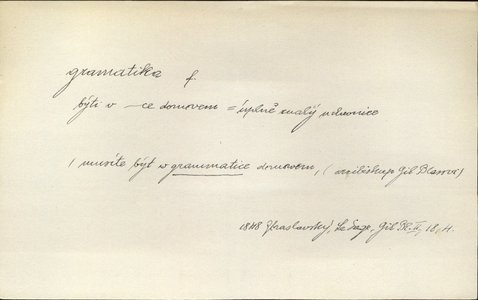 gramatika f.
býti v —ce domovem = úplně znalý mluvnice
/ musíte býť w grammatice domovem, ( arcibiskup Gil Blasovi)
1848 Zbraslavský, Le Sage, Gil Bl. II, 18, 4.